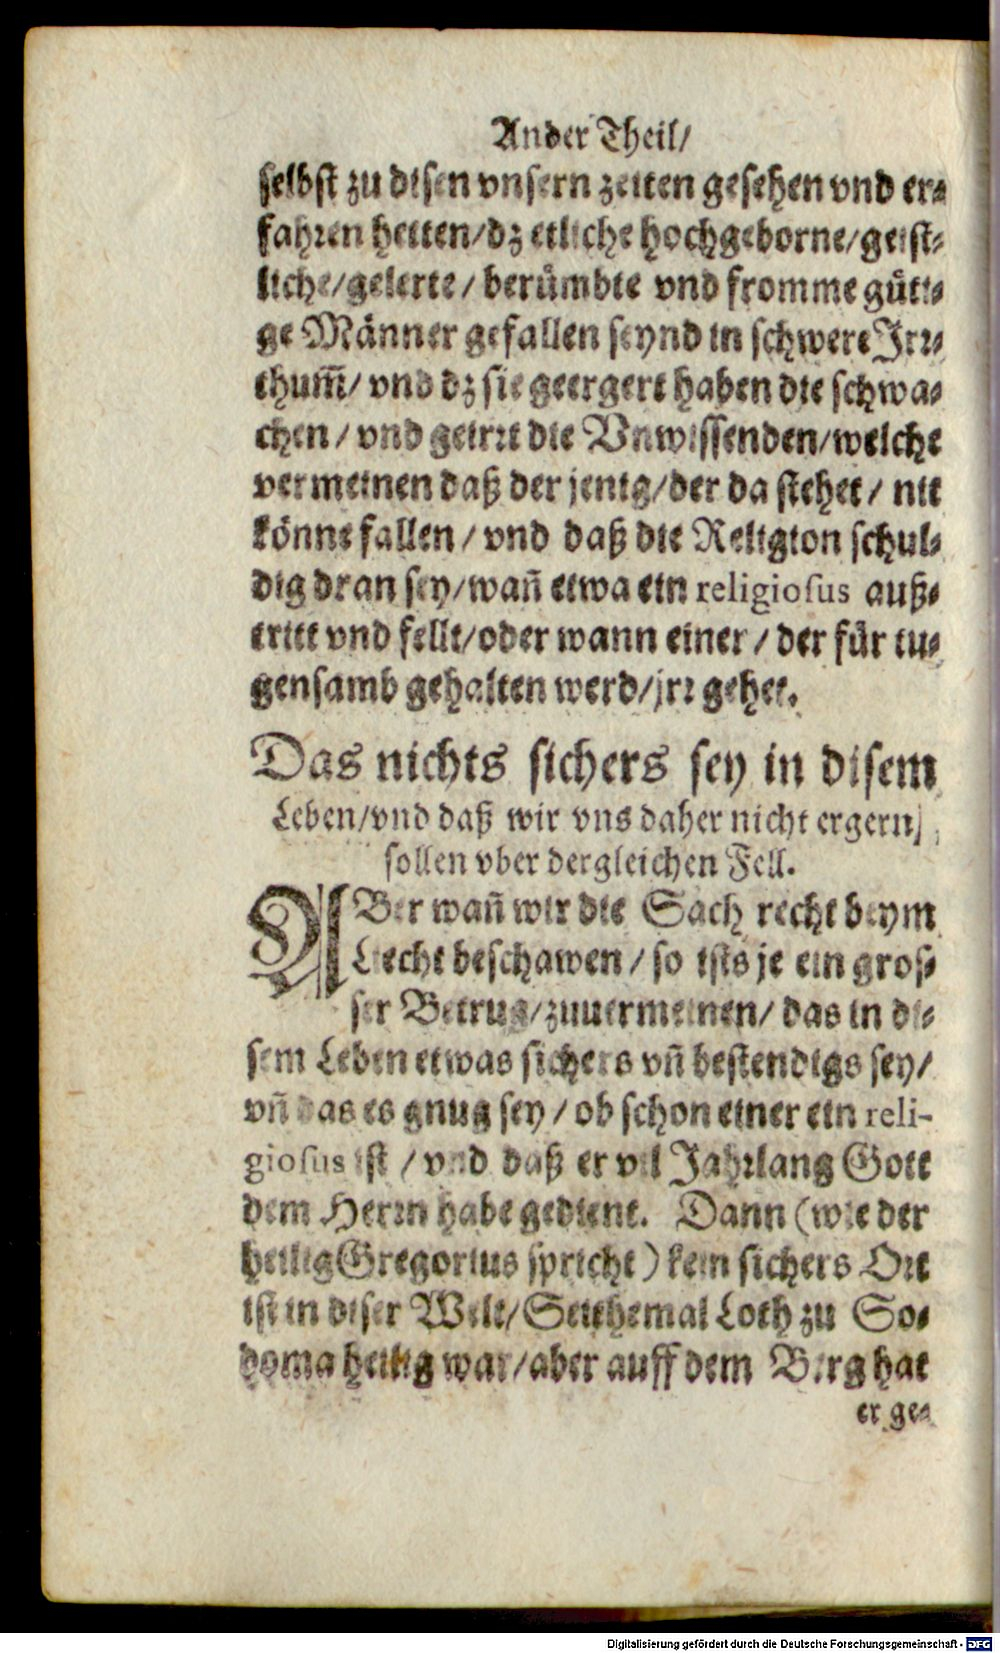 Ander Theil/
selbst zu disen vnsern zeiten gesehen vnd er-
fahren hetten/dz etliche hochgeborne/geist-
liche/gelerte/ berůmbte vnd fromme gůti-
ge Männer gefallen seynd in schwere Irr-
thum̄/ vnd dz sie geergert haben die schwa-
chen/ vnd geirrt die Vnwissenden/welche
vermeinen daß der jenig/der da stehet/ nit
könne fallen/ vnd daß die Religion schul-
dig dran sey/wañ etwa ein religiosus auß-
tritt vnd fellt/oder wann einer/ der für tu-
gensamb gehalten werd/jrr gehet.
Das nichts sichers sey in disem
Leben/vnd daß wir vns daher nicht ergern
sollen vber dergleichen Fell.
ABer wañ wir die Sach recht beym
Liecht beschawen/ so ists je ein gros-
ser Betrug/zuuermeinen/ das in di-
sem Leben etwas sichers vñ bestendigs sey/
vñ das es gnug sey/ ob schon einer ein reli-
giosus ist/ vnd daß er vil Jahrlang Gott
dem Herrn habe gedient. Dann (wie der
heilig Gregorius spricht) kein sichers Ort
ist in diser Welt/Seithemal Loth zu So-
doma heilig war/aber auff dem Berg hat
er ge-
Digitalisierung gefördert durch die Deutsche Forschungsgemeinschaft - DFG